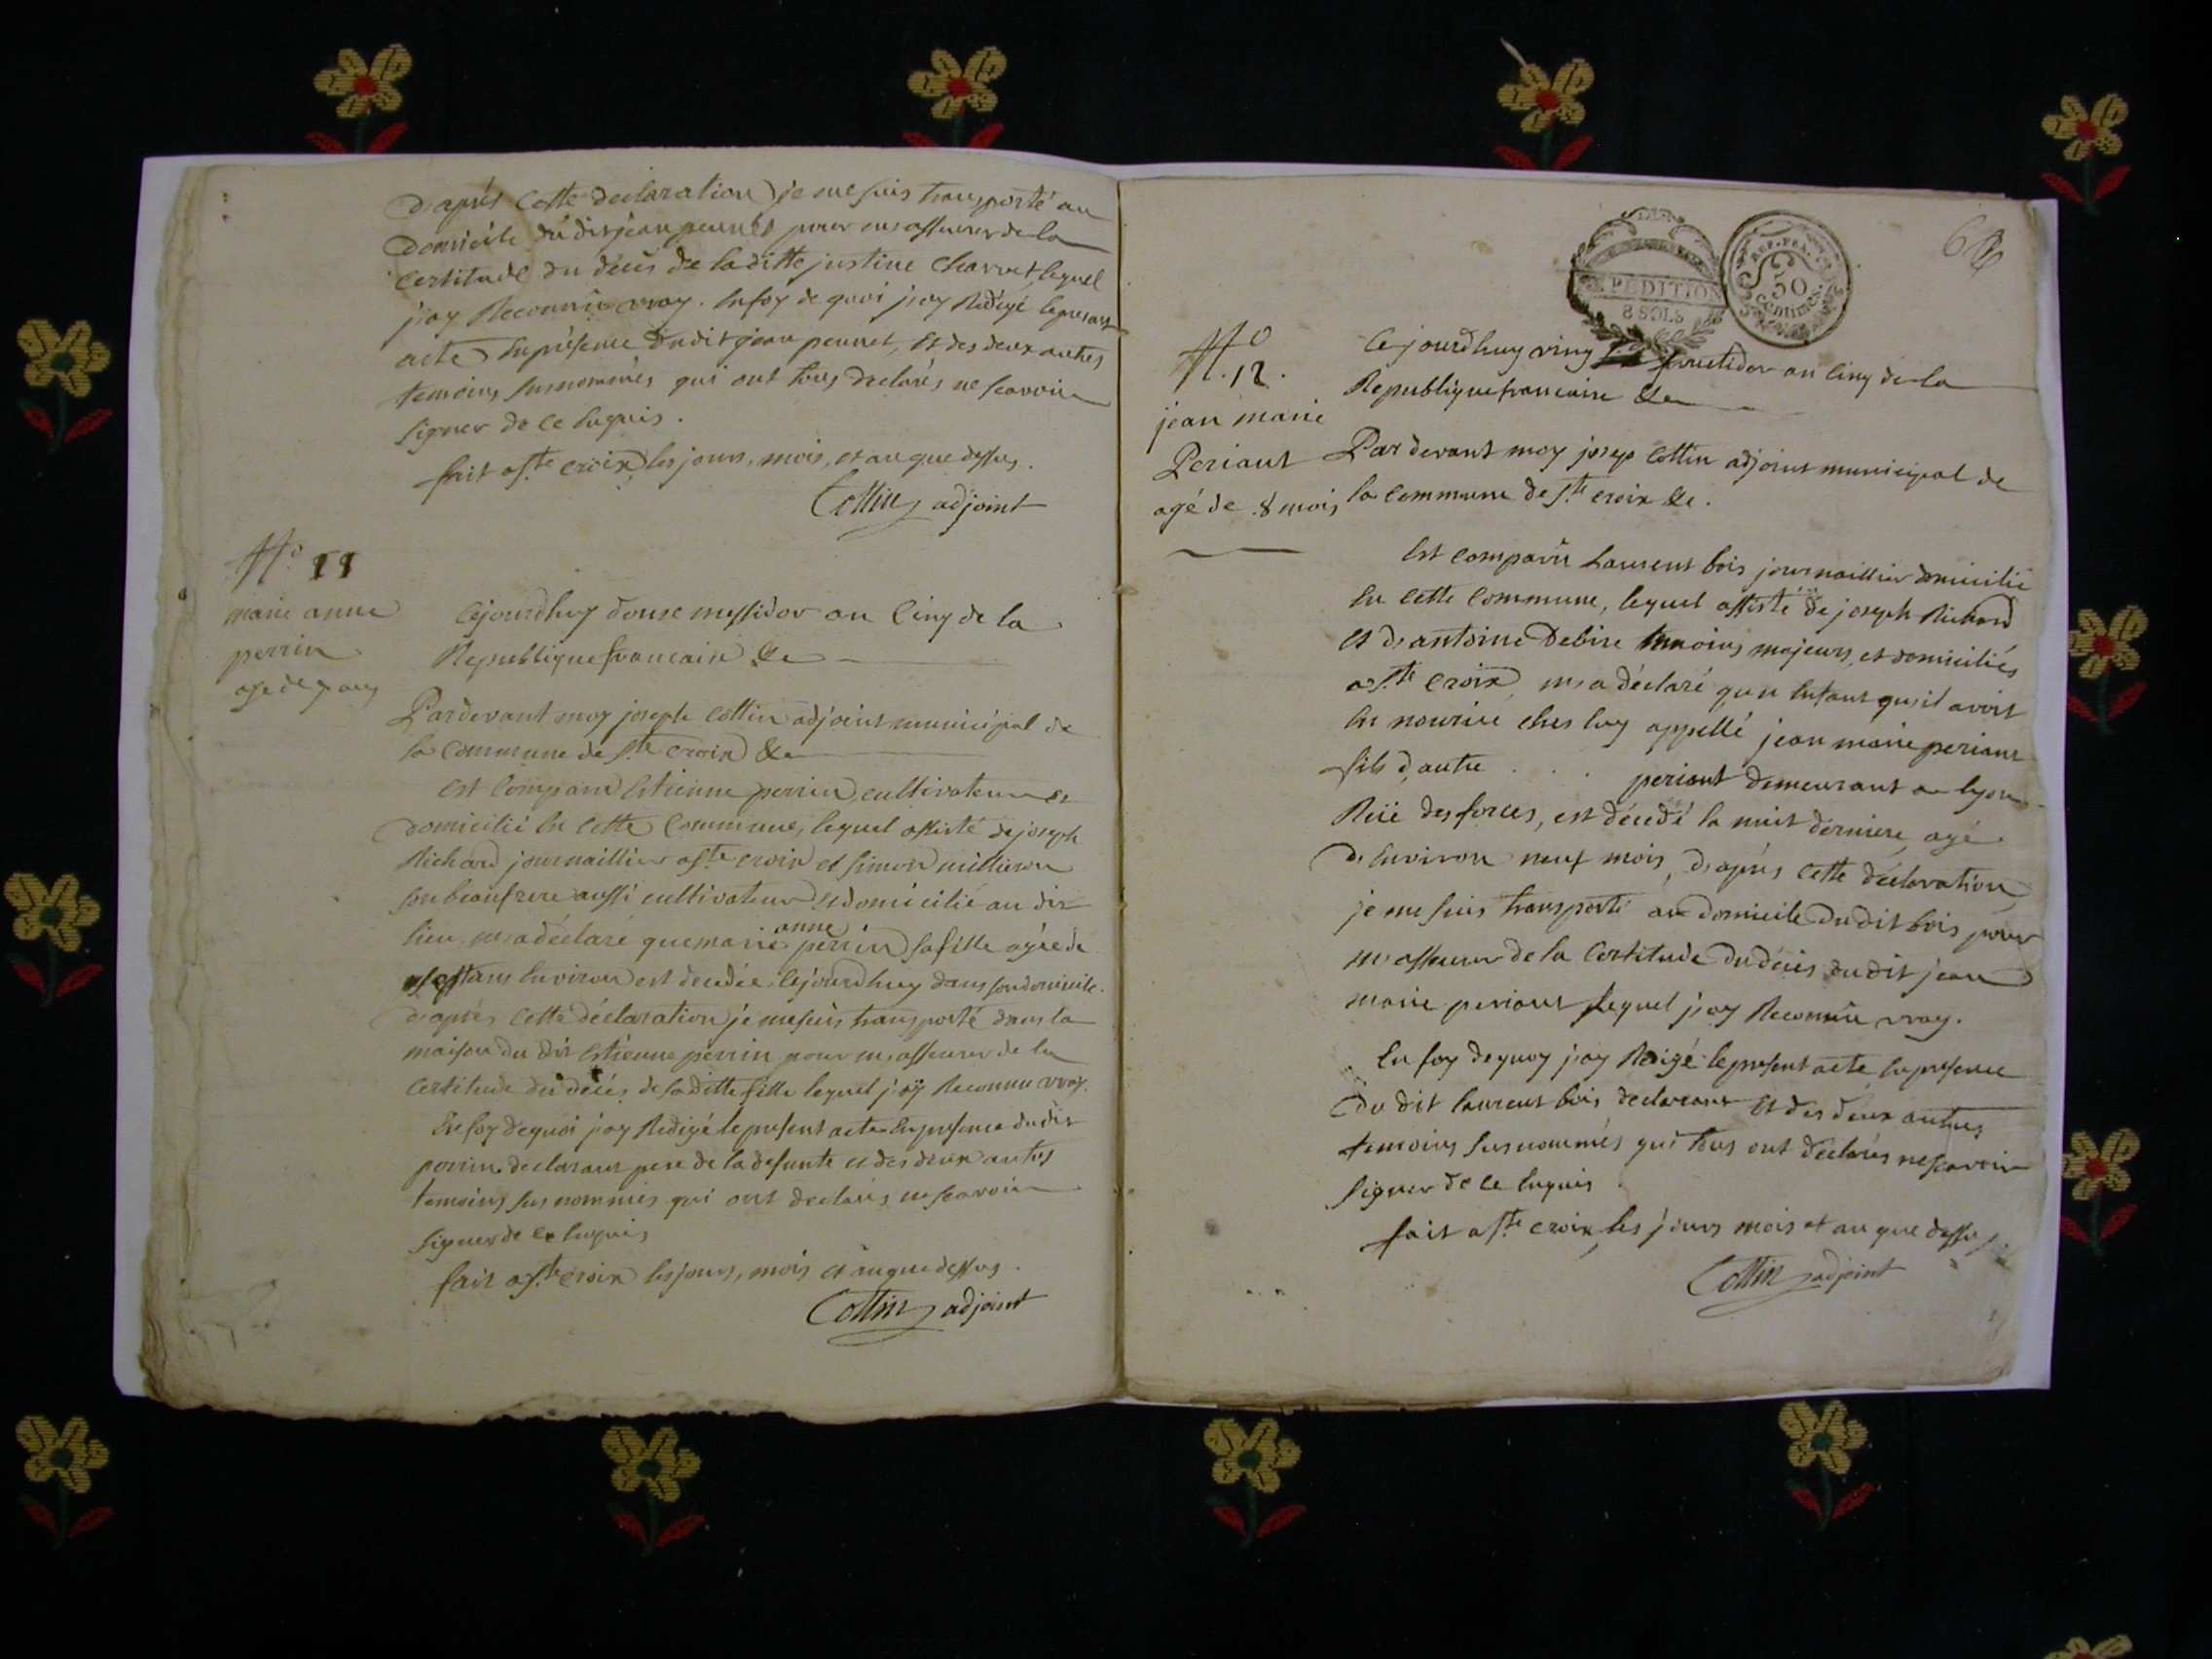 d'aprés Cette declaration je me suis transporté au
domicile du dit jean peunet pour m'asseurer de la
certitude du décés de laditte justine Charvet, lequel
j'ay Reconnu vray. En foy de quoi j'ay Redigé le present
acte En présence du dit jean peunet, Et des deux autres
temoins susnommés qui ont tous declarés ne scavoir
signer de ce Enquis.
fait a Ste croix les jours, mois, et an que dessus.
Cottin adjoint
No 11
marie anne
perrin
agé de 7 ans
Cejourdhuy douse messidor an Cinq de la
Republique francaise &c
Pardevant moy joseph Cottin adjoint municipal de
la Commune de Ste Croix &c
Est Comparu Estienne perrin, cultivateur et
domicilié En Cette Commune, lequel assisté de joseph
Richard journaillier a Ste croix et simon millieron
son beaufrere aussi cultivateur et domicilié au dit
lieu m'a déclaré que marie anne perrin sa fille agée de
sept ans Environ est decedée Cejourdhuy dans son domicile.
d'aprés Cette déclaration je me suis transporté dans la
maison du dit Estienne perrin pour m'asseurer de la
Certitude du décés de saditte fille lequel j'aÿ Reconnu vray.
En foy de quoi j'ay Redigé le present acte En presence du dit
perrin declarant pere de la defunte et des deux autres
temoins sus nommés qui ont declarés ne scavoir
signer de ce Enquis
fait a Ste croix les jours, mois et an que dessus.
Cottin adjoint
EXPEDITION
8 SOLS
REP. FRA.
50
Centimes
No
12.
jean marie
Periaut
agé de 8 mois
Cejourdhuy ving fructidor an Cinq de la
Republique francaise &c
Pardevant moy josep Cottin adjoint municipal de
la Commune de Ste croix &c.
Est Comparu Laurent bois journaillier domicilié
En Cette Commune, lequel assisté de joseph Richard
et d'antoine Debise temoins majeurs, et domiciliés
a Ste Croix, m'a déclaré qu'un Enfant qu'il avoit
En nourice ches luy appellé jean marie periaut
fils d'autre . . . periaut demeurant a lyon
Rüe des forces, est décedé la nuit derniere, agé
d'Environ neuf mois, d'aprés Cette déclaration
je me suis transporté au domicile du dit bois pour
m'asseurer de la Certitude du décés du dit jean
marie periaut lequel j'ay Reconnu vray.
En foy de quoy j'ay Redigé le present acte En presence
du dit laurent bois declarant Et des deux autres
temoins susnommés qui tous ont declarés ne scavoir
signer de ce Enquis
fait a Ste croix, les jours mois et an que dessus.
Cottin adjoint